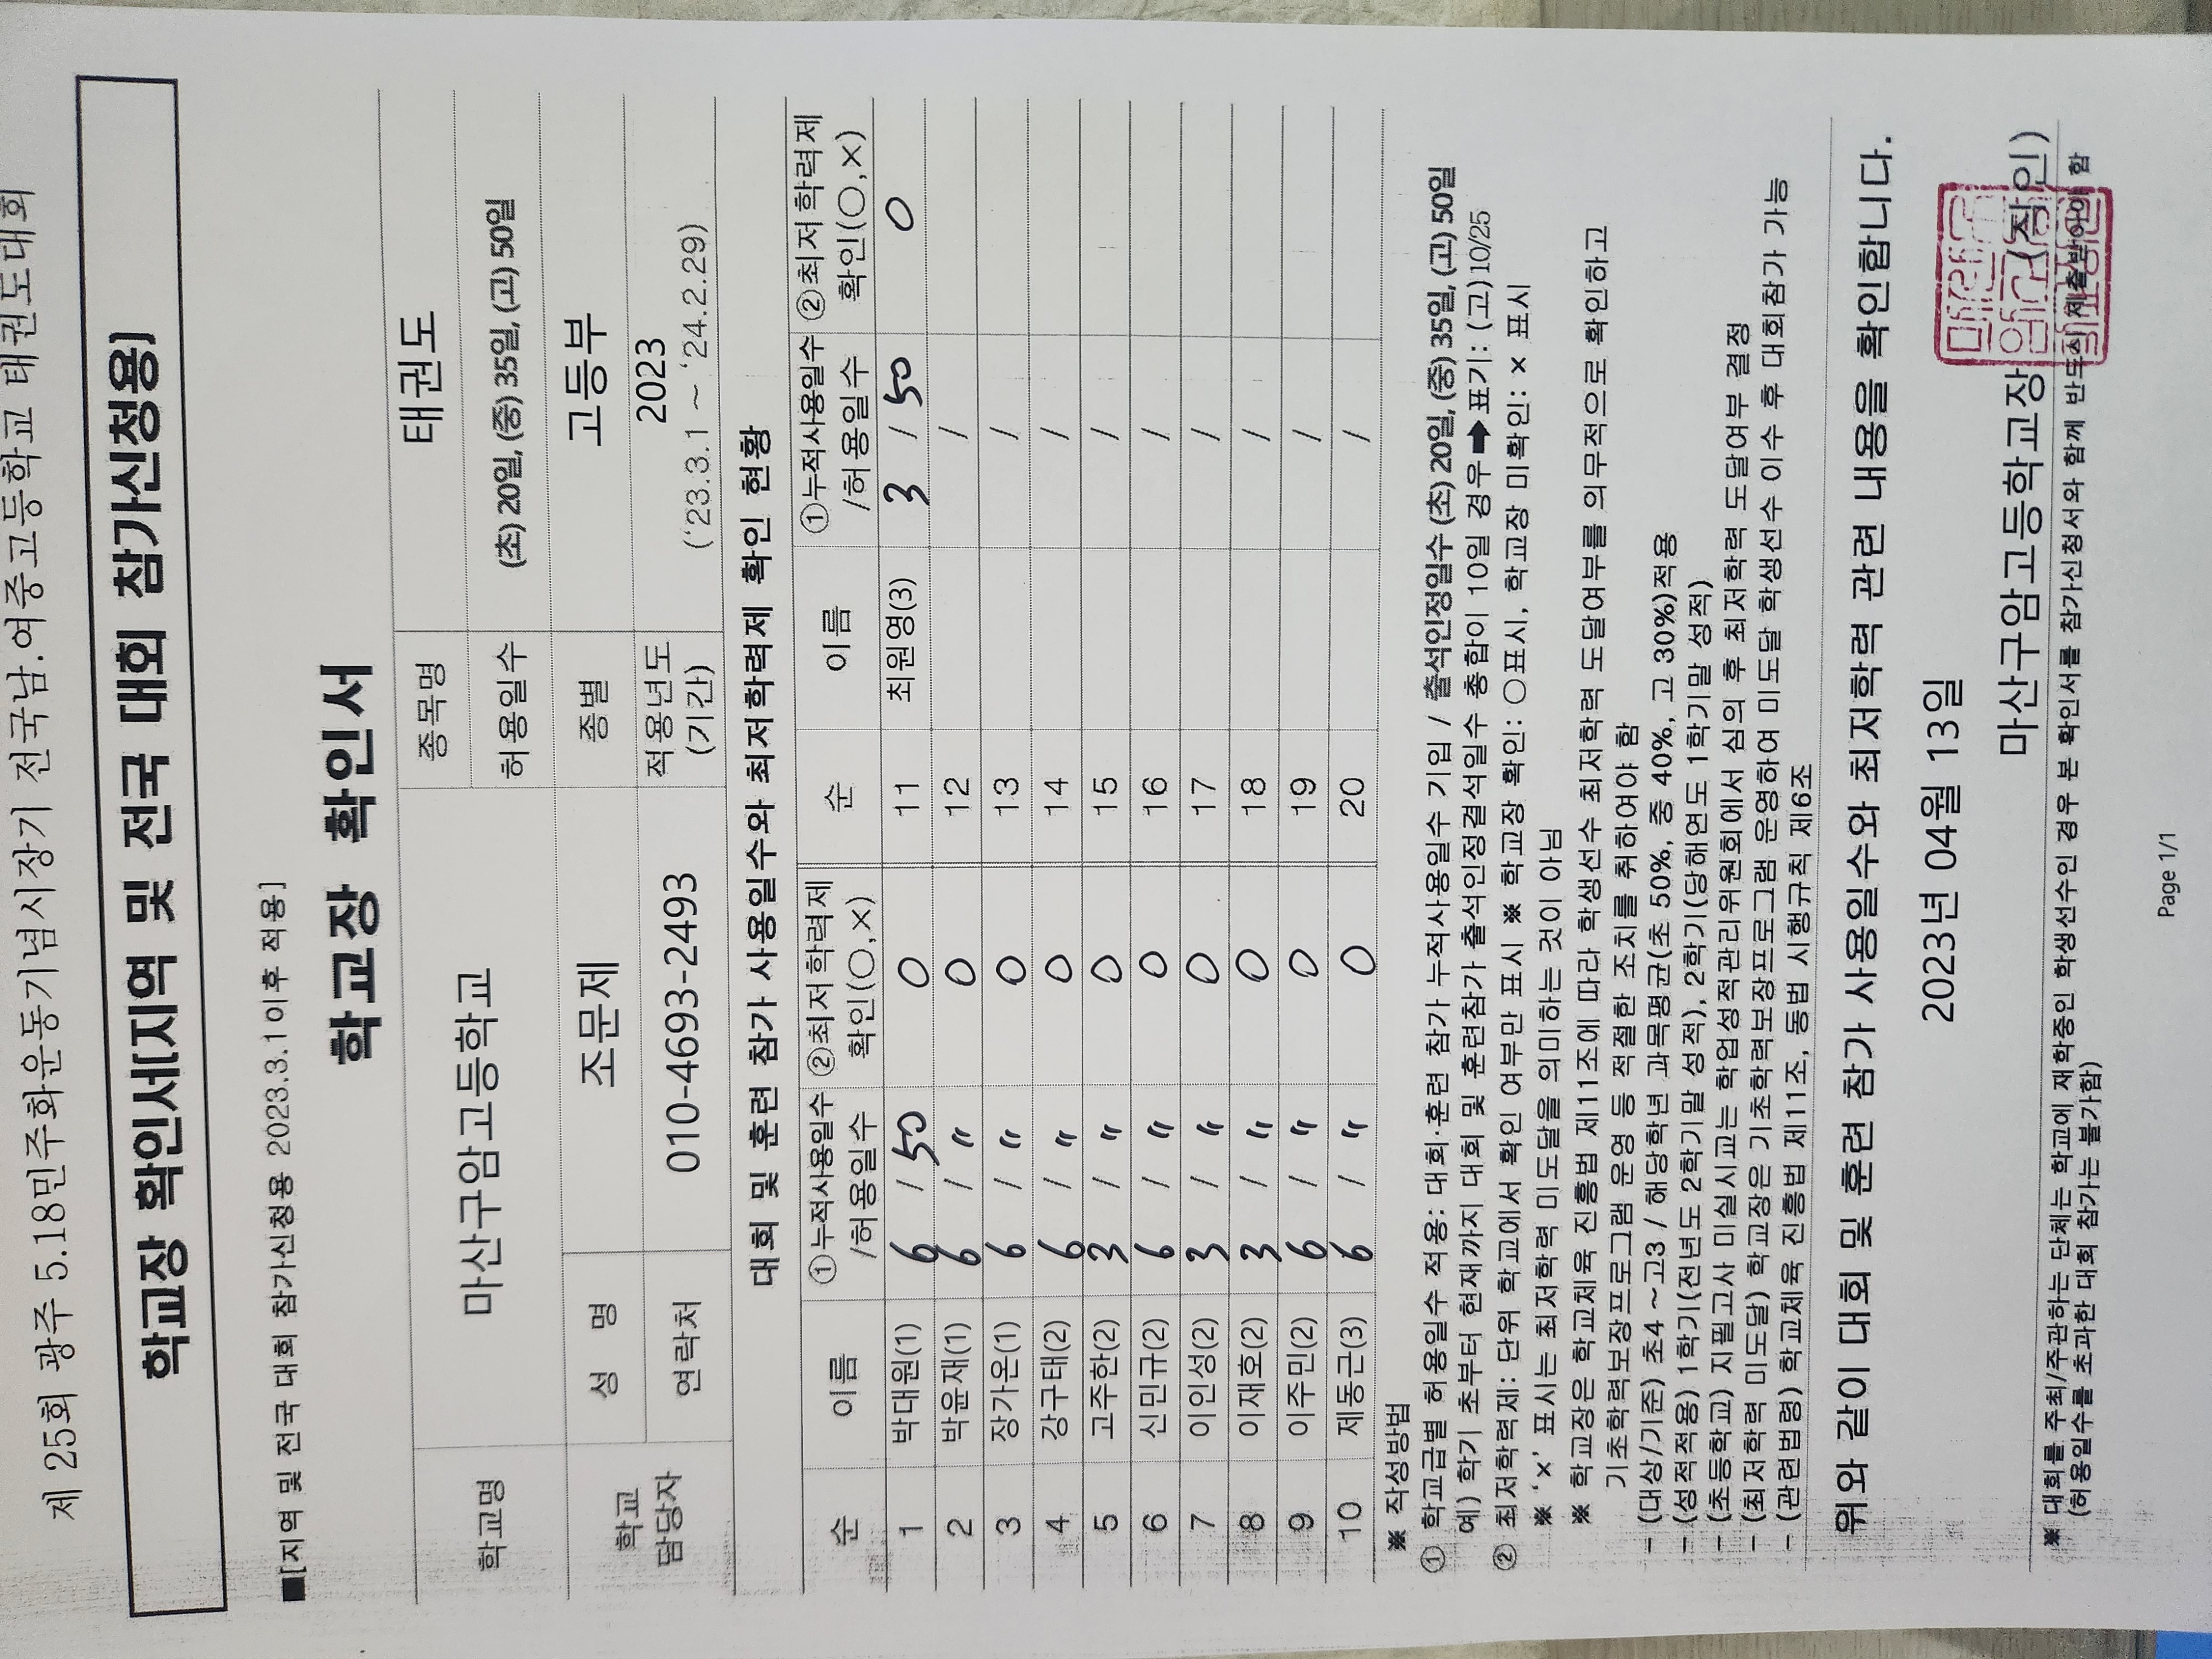 제 25회 광주 5.18민주화운동기념시장기 전국남.여중고등학교 태권도대회
학교장 확인서[지역 및 전국 대회 참가신청용]
■[지역 및 전국 대회 참가신청용 2023.3.1이후 적용]
학교장 확인서
학교명 마산구암고등학교 종목명 태권도
허용일수 (초) 20일, (중) 35일, (고) 50일
학교 담당자 성 명 조문제 종별 고등부
연락처 010-4693-2493 적용년도 (기간) 2023 ('23.3.1 ~ '24.2.29)
대회 및 훈련 참가 사용일수와 최저학력제 확인 현황
순 이름 ①누적사용일수 /허용일수 ②최저학력제 확인(○,×) 순 이름 ①누적사용일수 /허용일수 ②최저학력제 확인(○,×)
1 박대원(1) 6 / 50 ○ 11 최원영(3) 3 / 50 ○
2 박윤재(1) 6 / 〃 ○ 12 /
3 장가온(1) 6 / 〃 ○ 13 /
4 강구태(2) 6 / 〃 ○ 14 /
5 고주한(2) 3 / 〃 ○ 15 /
6 신민규(2) 6 / 〃 ○ 16 /
7 이인성(2) 3 / 〃 ○ 17 /
8 이재호(2) 3 / 〃 ○ 18 /
9 이주민(2) 6 / 〃 ○ 19 /
10 제동근(3) 6 / 〃 ○ 20 /
※ 작성방법
① 학교급별 허용일수 적용: 대회·훈련 참가 누적사용일수 기입 / 출석인정일수 (초) 20일, (중) 35일, (고) 50일
예) 학기 초부터 현재까지 대회 및 훈련참가 출석인정결석일수 총합이 10일 경우➡표기: (고)10/25
② 최저학력제: 단위 학교에서 확인 여부만 표시 ※ 학교장 확인: ○표시, 학교장 미확인: × 표시
※ '×' 표시는 최저학력 미도달을 의미하는 것이 아님
※ 학교장은 학교체육 진흥법 제11조에 따라 학생선수 최저학력 도달여부를 의무적으로 확인하고
기초학력보장프로그램 운영 등 적절한 조치를 취하여야 함
- (대상/기준) 초4 ~ 고3 / 해당학년 과목평균(초 50%, 중 40%, 고 30%)적용
- (성적적용) 1학기(전년도 2학기말 성적), 2학기(당해연도 1학기말 성적)
- (초등학교) 지필고사 미실시교는 학업성적관리위원회에서 심의 후 최저학력 도달여부 결정
- (최저학력 미도달) 학교장은 기초학력보장프로그램 운영하여 미도달 학생선수 이수 후 대회참가 가능
- (관련법령) 학교체육 진흥법 제11조, 동법 시행규칙 제6조
위와 같이 대회 및 훈련 참가 사용일수와 최저학력 관련 내용을 확인합니다.
2023년 04월 13일
마산구암고등학교장 (직인)
※ 대회를 주최/주관하는 단체는 학교에 재학중인 학생선수인 경우 본 확인서를 참가신청서와 함께 반드시 제출받아야 함
(허용일수를 초과한 대회 참가는 불가함)
Page 1/1